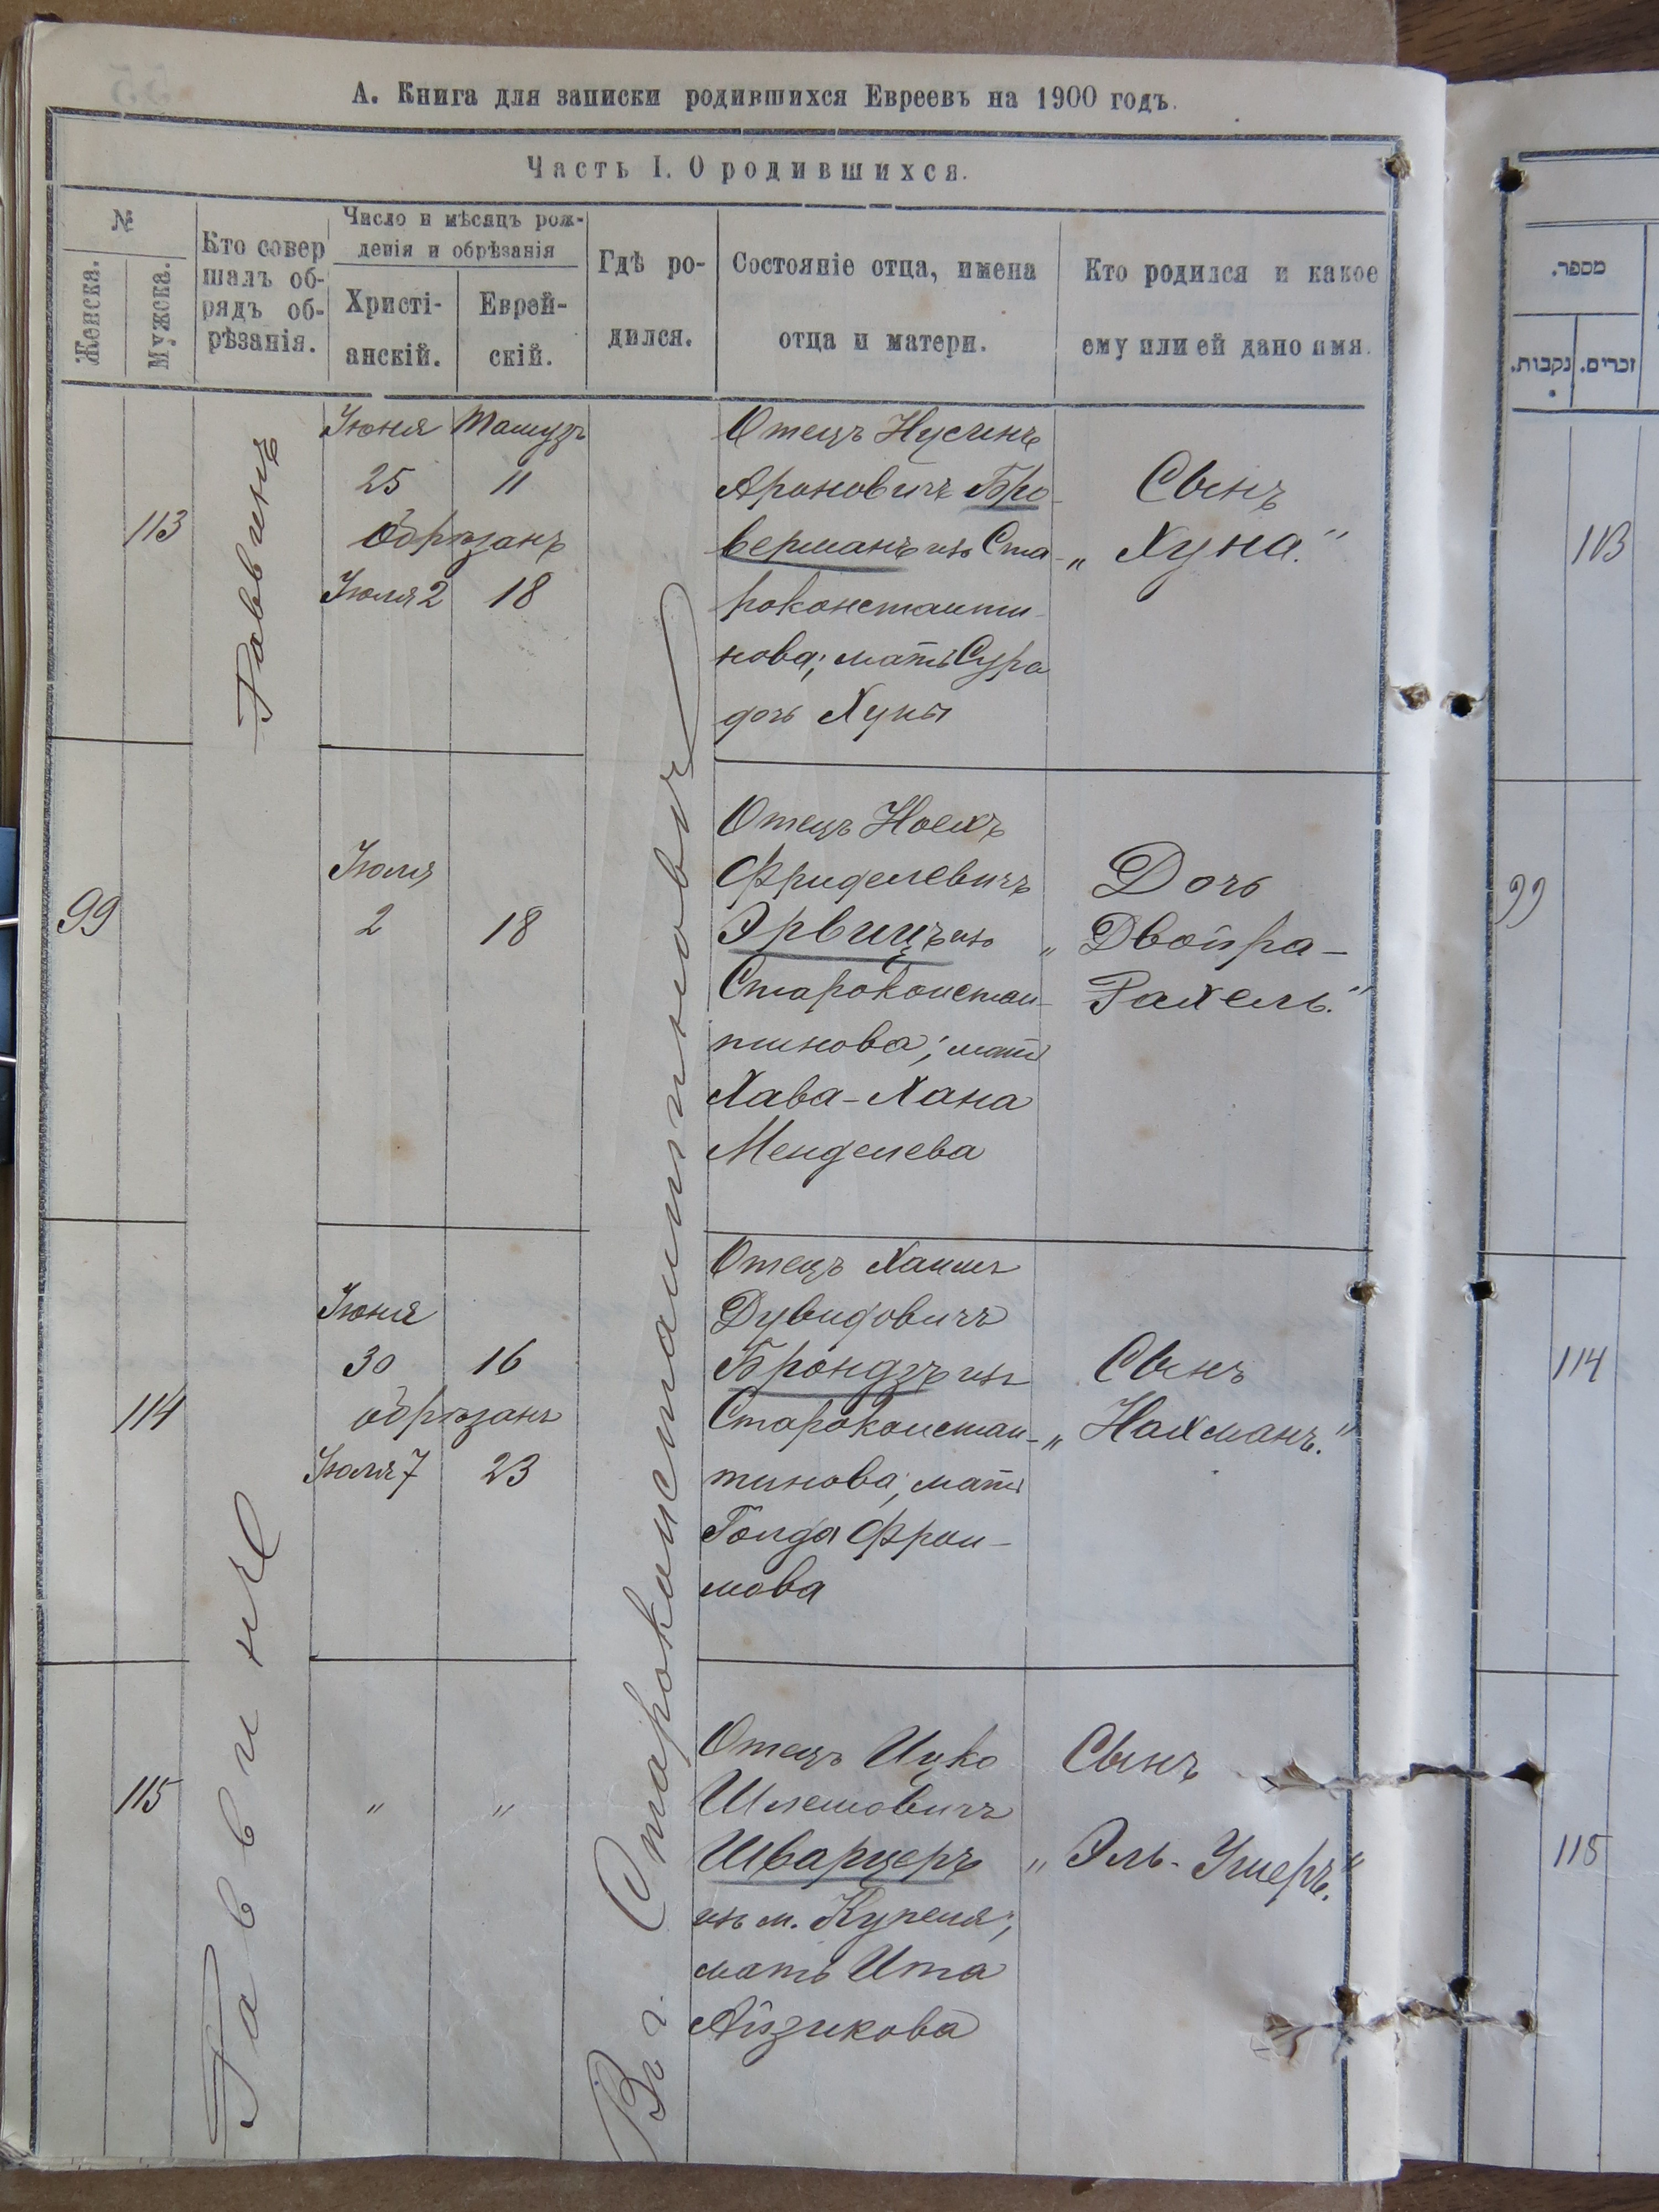 А. Книга для записки родившихся Евреевъ на 1900 годъ.
Часть I. О родившихся.
№
Женска.
Мужска.
Кто совер
шалъ об-
рядъ об-
рѣзанія.
Число и мѣсяцъ рож-
денія и обрѣзанія
Христі-
анскій.
Еврей-
скій.
Гдѣ ро-
дился.
Состояніе отца, имена
отца и матери.
Кто родился и какое
ему или ей дано имя.
מספר.
נקבות.
זכרים.
Раввинъ
Въ г. Староконстантиновѣ
113
Іюня Тамузъ
25 11
обрѣзанъ
Іюля 2 18
Отецъ Нусинъ
Ароновичъ Бро-
верманъ изъ Ста-
роконстанти-
нова; мать Сура
дочь Хуны
Сынъ
„Хуна."
113
99
Іюля
2 18
Отецъ Ноехъ
Фриделевичъ
Эрвицъ изъ
Староконстан-
тинова; мать
Хава-Хана
Менделева
Дочь
„Двойра-
Рахель."
99
114
Іюня
30 16
обрѣзанъ
Іюля 7 23
Отецъ Хаимъ
Дувидовичъ
Брондзъ изъ
Староконстан-
тинова; мать
Голда Фрои-
мова
Сынъ
„Нахманъ."
114
Раввинъ
115
" "
Отецъ Ицко
Шлемовичъ
Шварцеръ
изъ м. Купеля;
мать Ита
Айзикова
Сынъ
„Эль-Ушеръ."
115